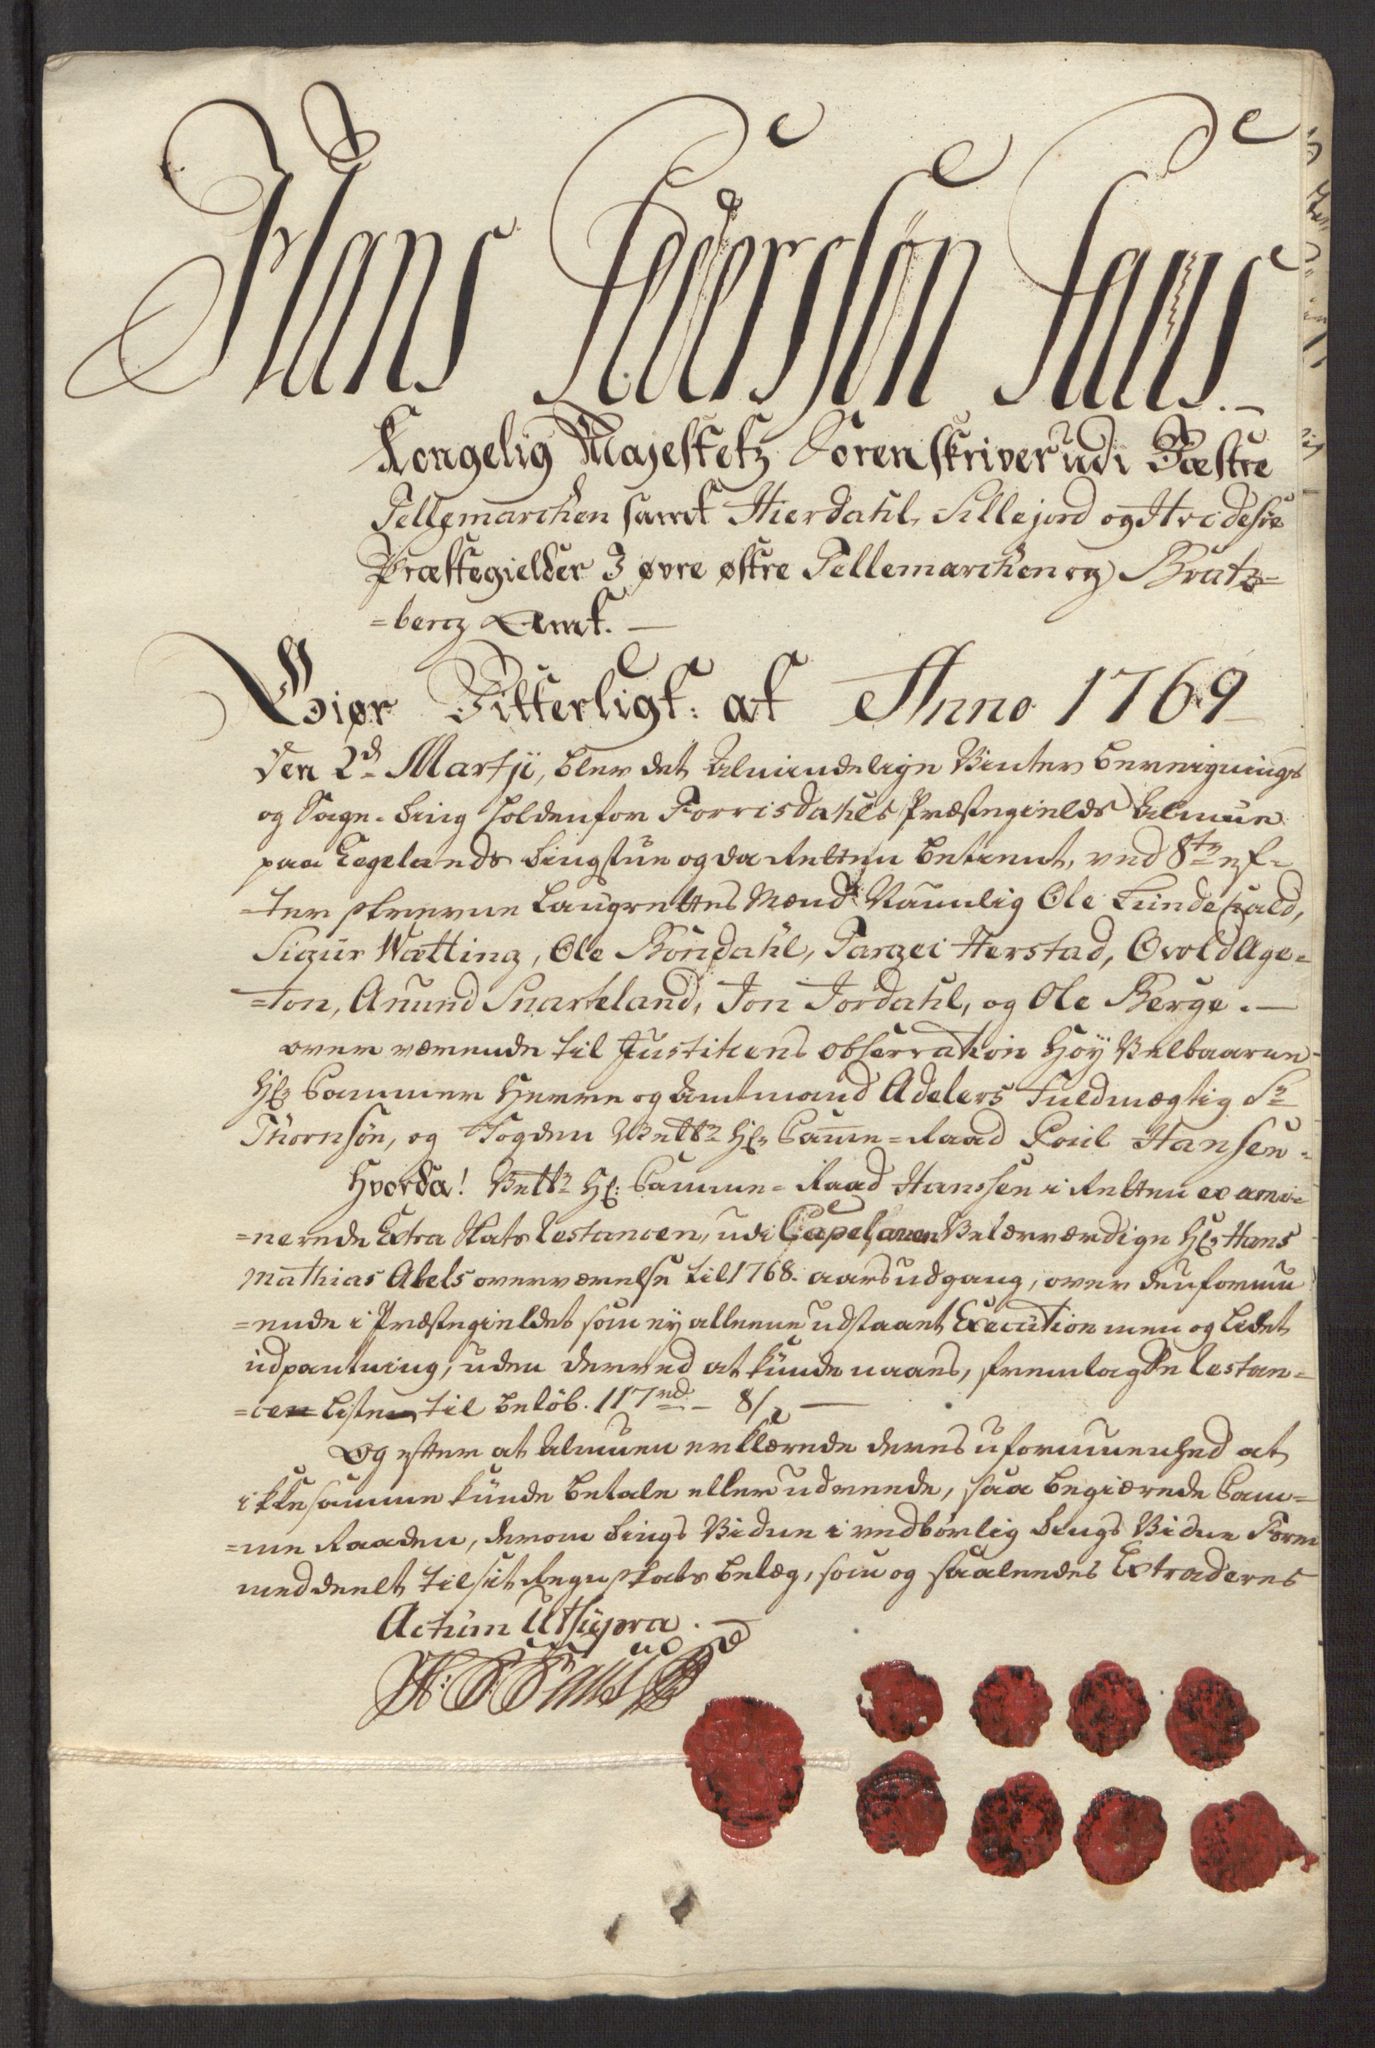 Hans Pedersøn Faus.
Kongelig Majestetz Sorenskriver udi Væstre
Tellemarchen samt Hierdahl, Sillejord og Hvidesøe
Præstegielder J øvre østre Tellemarchen og Bratz=
=berg Amt. —
Giør Vitterligt: at Anno 1769
den 2d Martji, blev det Almindelige Vinter bevergnings
og Sage-Ting holden for Forrisdahls Præstegields Almue
paa Tegelands Tingstue og da Retten betient, ved 8te ef=
=terskrevne Laugrettes Mænd Naunlig Ole Lundevald,
Sigur Wætting, Ole Röndahl, Targei Herstad, Ovold Age=
=ton, Anund Snarteland, Jon Jordahl, og Ole Berge. —
overværende til Justitiens observation Høy Velbaarne
Hr Cammer Herre og Amtmand Adelers Fuldmægtig Sr
Thornsøn, og Fogden Velbr Hr Camme=Raad Poul Hansen.
Hvorda! Velbr Hr: Camme=Raad Hanssen i Retten exami=
=nerede Extra Skats Restancen, udi Capelanen Velærværdige Hr Hans
Mathias Abels overværelse til 1768. aars udgang, over de uformu
=ende i Præstegieldet som ey alleene udstaaet Execution men og lidet
udpantning, uden derved at kunde naaes, fremlagde Restan=
=ce Listen til beløb. 117rd. - 8/, —
Og efter at Almuen erklærede deres uformuenhed at
ikke samme kunde betale eller udreede, saa begiærede Cam=
=me Raaden, derom Tings Vidne i vedbørlig Tings Vidne Form
meddeelt til sit Regnskabs belæg, som og saaledes Extraderes
Actum Ut supra. —
H: P: Faus